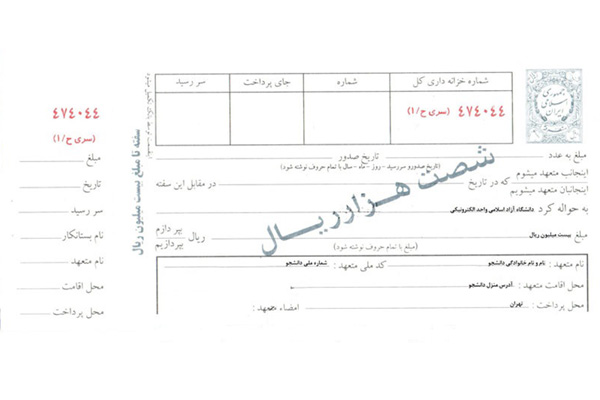 شماره خزانه داری کل
شماره
جای پرداخت
سر رسید
۴۷۴۰۴۴
(سری ح/۱)
جمهوری
اسلامی
ایران
سفته تا مبلغ بیست میلیون ریال
شصت هزار ریال
مبلغ به عدد
تاریخ صدور
(تاریخ صدور و سررسید - روز - ماه - سال با تمام حروف نوشته شود)
اینجانب متعهد میشوم
اینجانبان متعهد میشویم
که در تاریخ
در مقابل این سفته
به حواله کرد دانشگاه آزاد اسلامی واحد الکترونیکی
مبلغ بیست میلیون ریال
ریال
بپردازم
بپردازیم
(مبلغ با تمام حروف نوشته شود)
نام متعهد : نام و نام خانوادگی دانشجو
کد ملی متعهد : شماره ملی دانشجو
محل اقامت متعهد : آدرس منزل دانشجو
محل پرداخت : تهران
امضاء متعهد:
۴۷۴۰۴۴
(سری ح/۱)
مبلغ
تاریخ
سر رسید
نام بستانکار
نام متعهد
محل اقامت
محل پرداخت